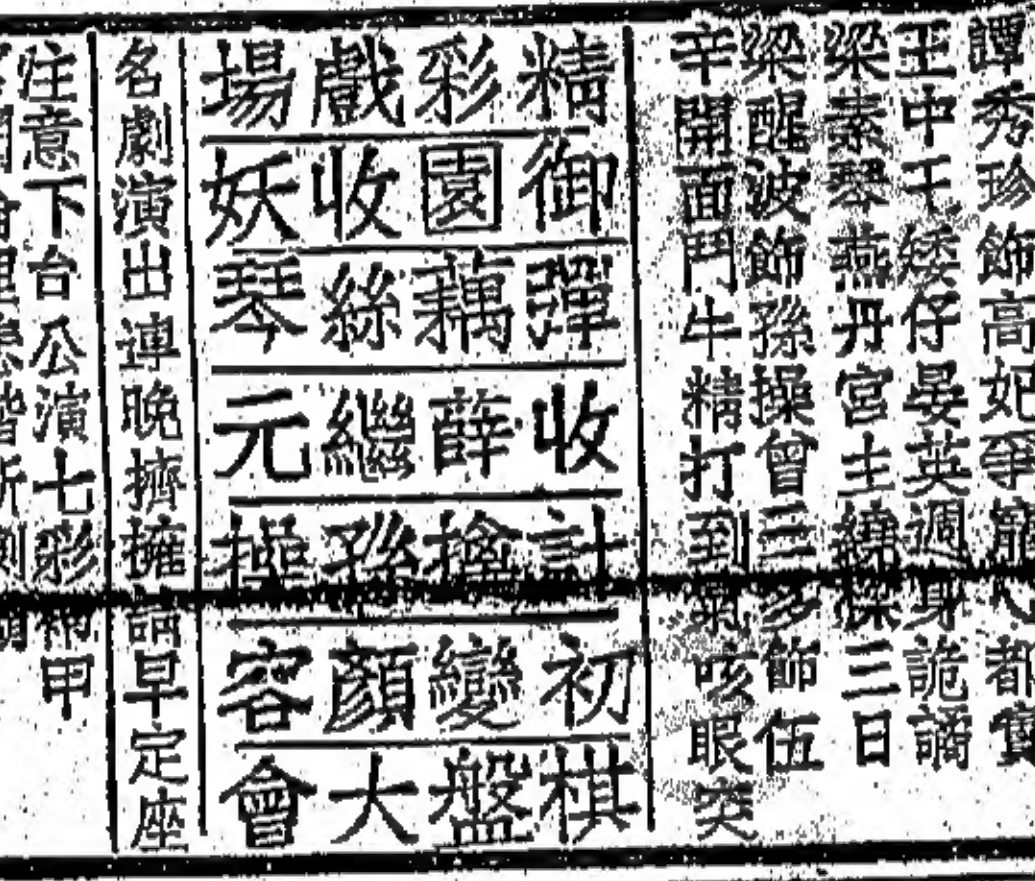 譚秀珍飾高妃爭寵心都實
王中王矮仔晏英週身詭譎
梁素琴燕丹宮主繞樑三日
梁醒波飾孫操曾三多飾伍
辛開面鬥牛精打到氣咳眼突
精彩戲場
御園收妖
彈藕絲琴
收薛繼元
計擒孫操
初變顏容
棋盤大會
名劇演出連晚擠擁請早定座
注意下台公演七彩 甲